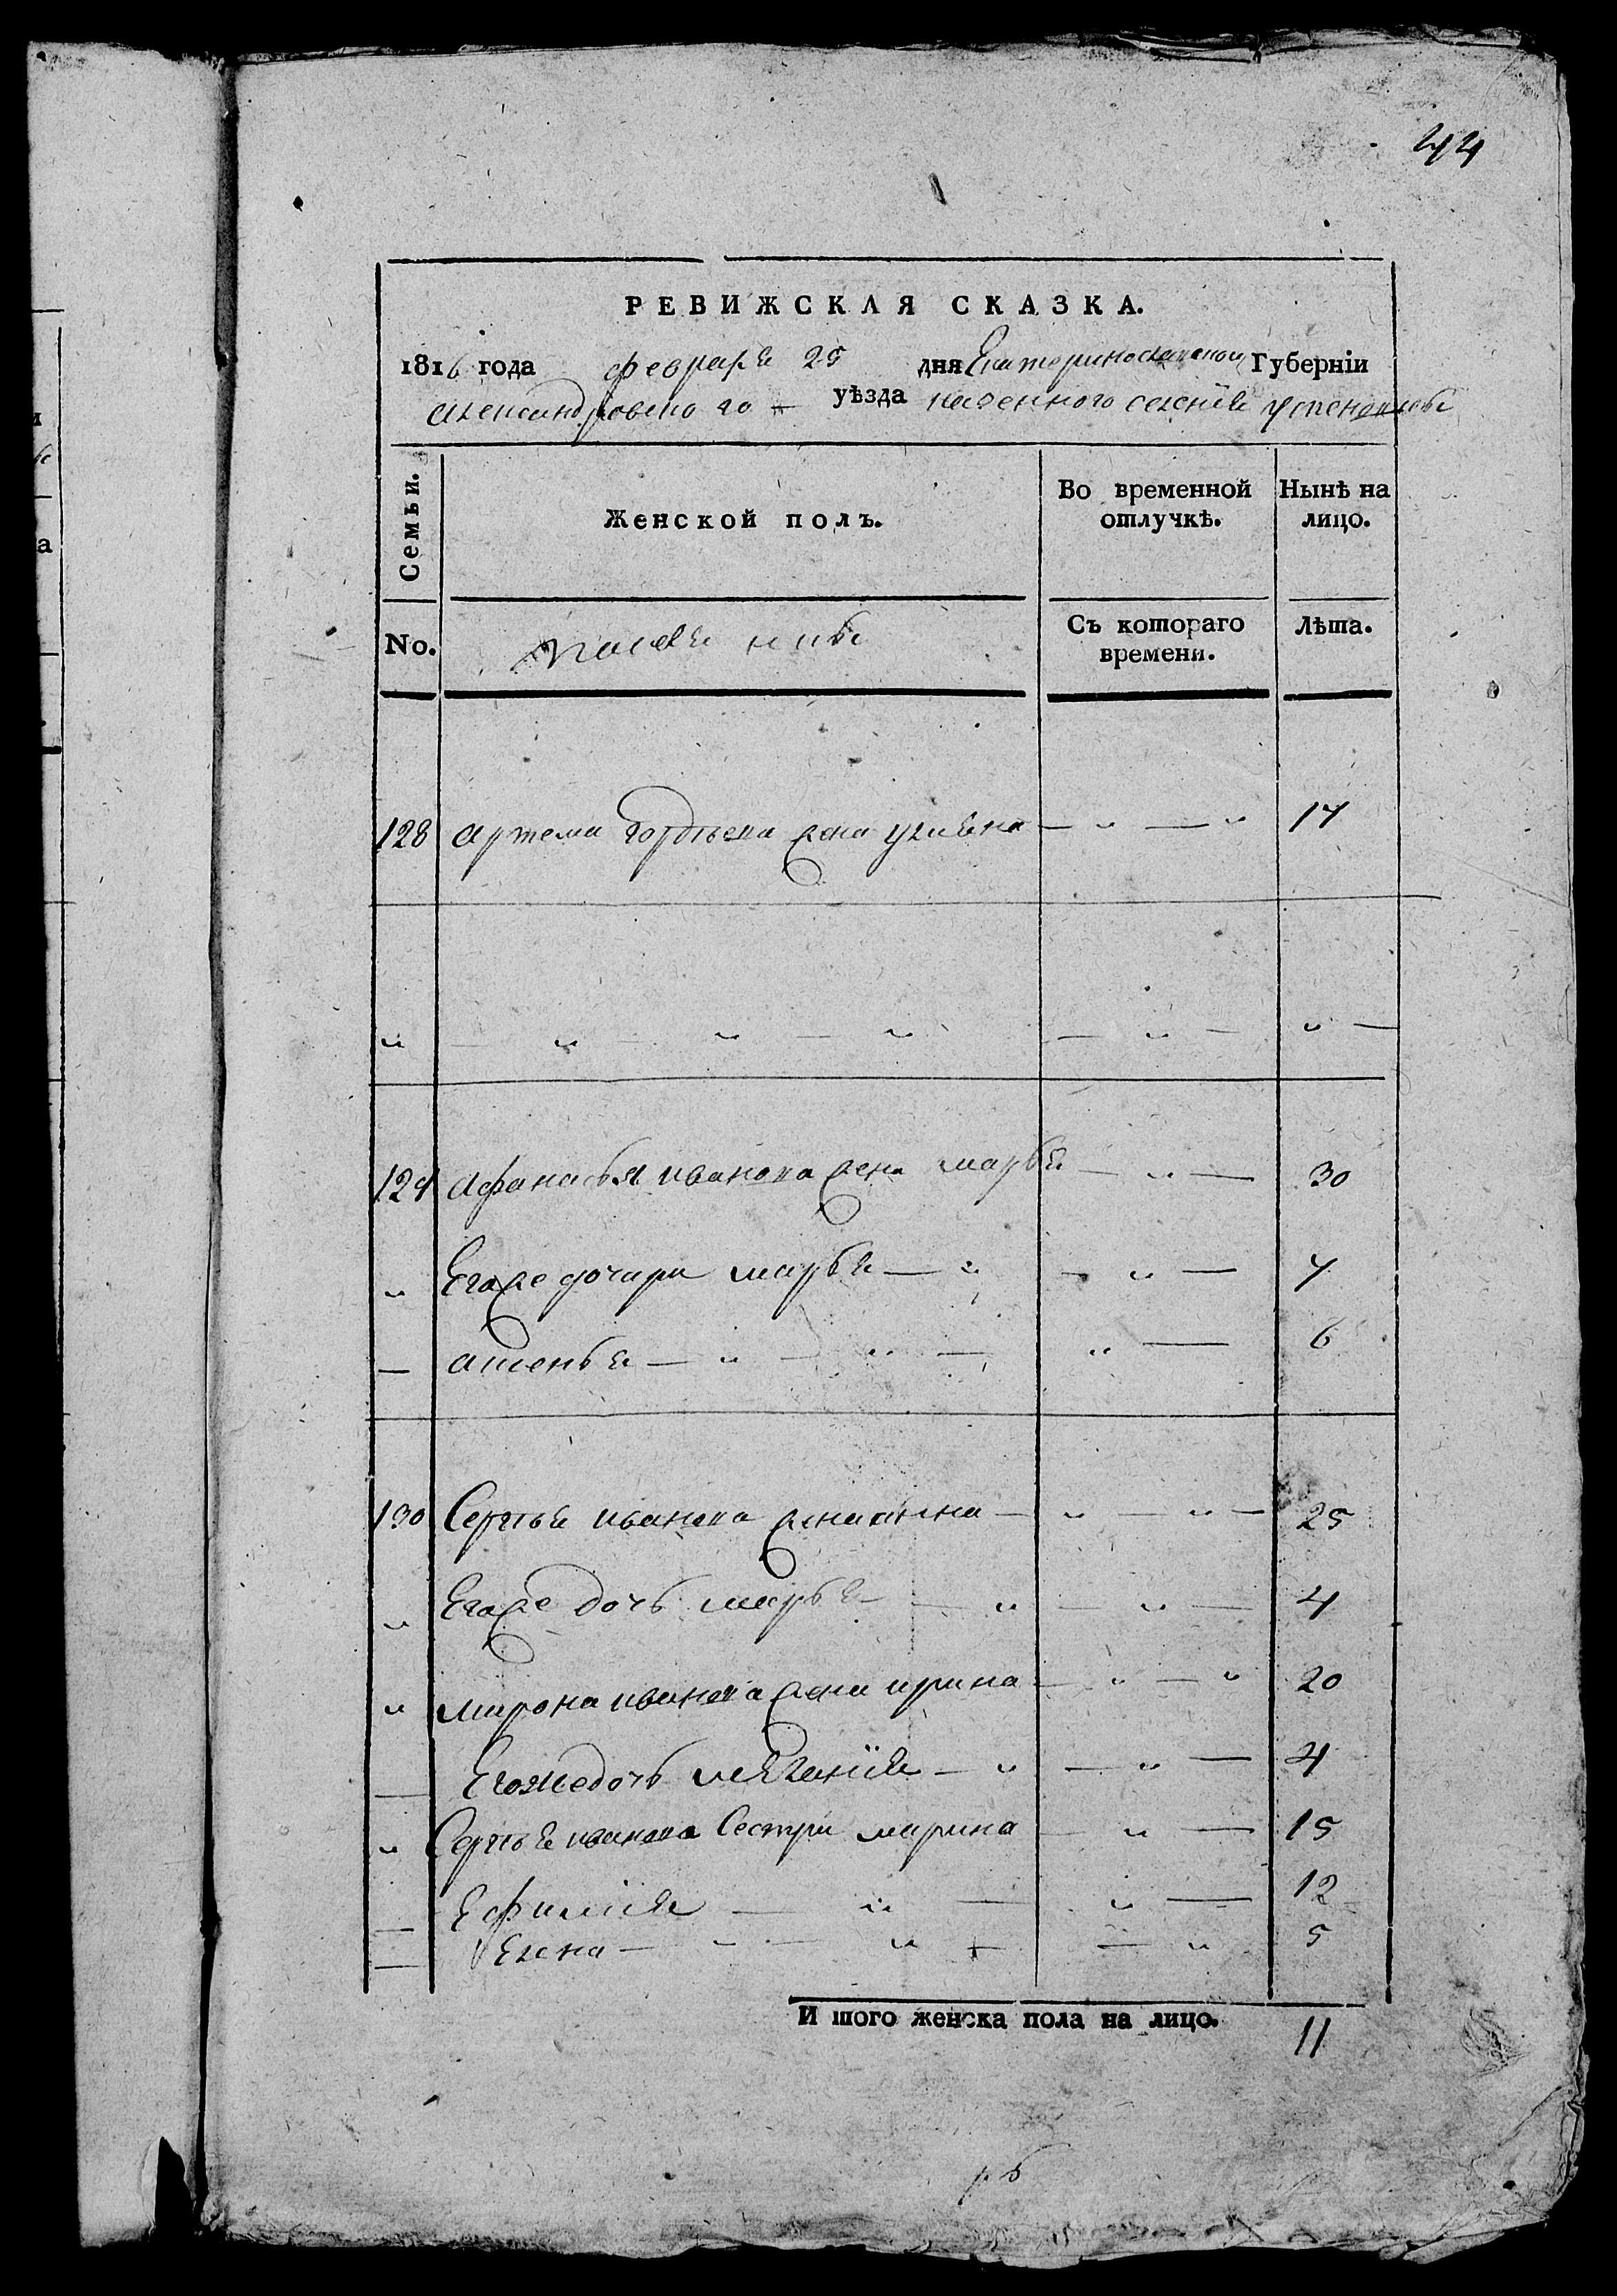 44
РЕВИЖСКАЯ СКАЗКА.
1816 года февраля 25 дня Екатеринославской Губерніи
александровского уѣзда казенного селенія успеновки
Семьи.
Женской полъ.
Во временной отлучкѣ.
Нынѣ на лицо.
No.
Съ котораго времени.
Лѣта.
128 артема гордѣева жена улияна — " — " 17
" — " — " — " — " — " —
129 афанасья иванова жена марья — " — 30
" Егоже дочери марья — " — " — 7
— аксенья — " — " — " — 6
130 Сергѣя иванова жена анна — " — " — 25
" Егоже дочь марья — " — " — 4
" мирона иванова жена ирина — " — " 20
— Егоже дочь меланія — " — " — 4
" Сергѣя иванова Сестри марина — " — 15
— Ефимія — " — " — 12
— Елена — " — " — " 5
И того женска пола на лицо. 11